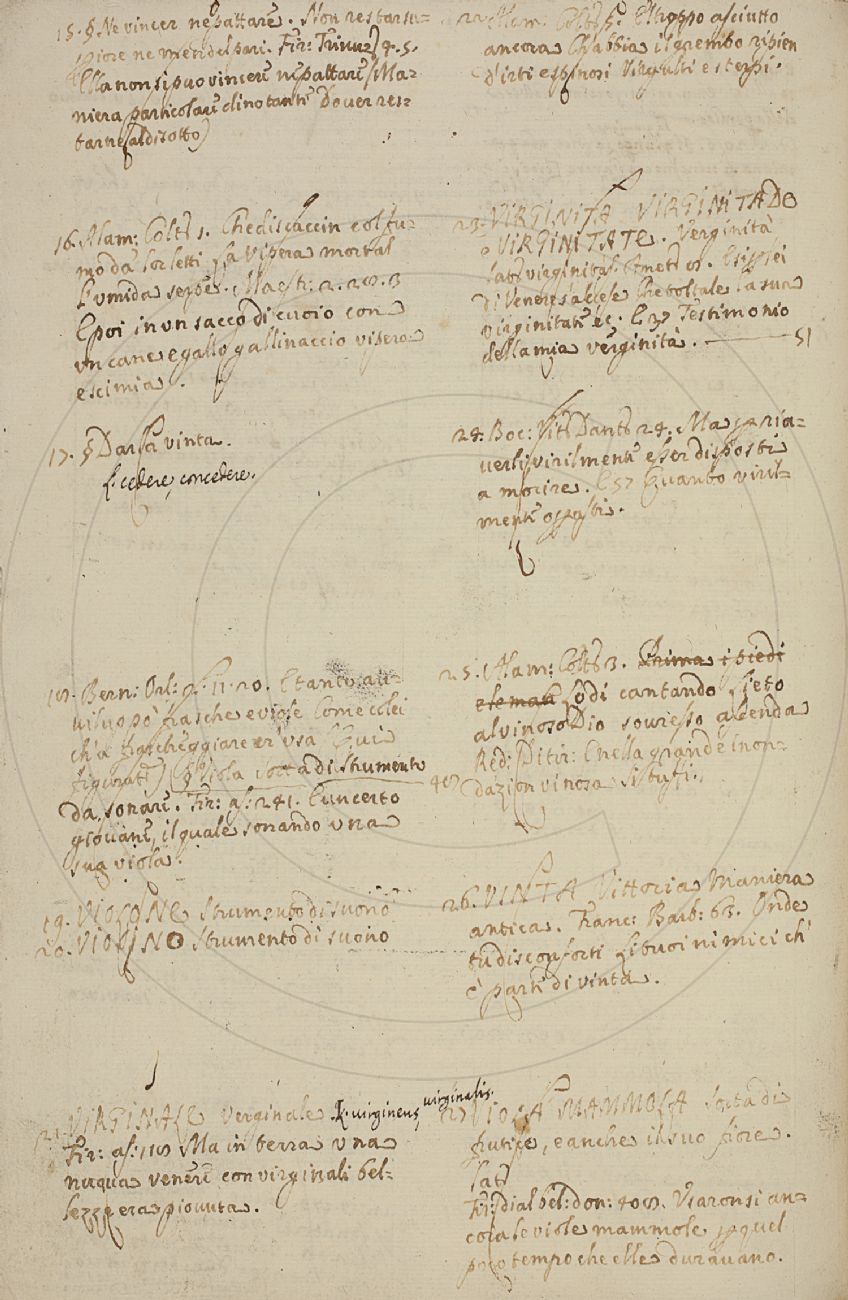 15. § Ne vincer ne pattare. Non restar su-
piore ne men del pari. Fir: Trinuz 4. 5.
Ella non si puo vincere ne pattare (Ma-
niera particolare dinotante Dover res-
tarne al disotto)
16. Alam: Colt: 1. Che discaccin col fu-
mo da lor letti la vipera mortal
l'umida serpe. Maestr: 2. 28. 3
E poi in un sacco di cuoio con
un cane e gallo gallinaccio vipera
e scimia.
17. § Dar la vinta.
L. cedere, concedere.
18. Bern: Orl: 11. 20. E tanto
frasche e viole Come colei
ch'a frascheggiare er' usa (Qui
figurate) (§ Viola sorta di strumento
da sonare. Fir: as: 241. E un certo
giovane, il quale sonando una
sua viola.
19. VIOLONE Strumento di suono
20. VIOLINO Strumento di suono
21. VIRGINALE Verginale L. virgineus, virginalis.
Fir: as: 118 Ma in terra una
nuova venere con virginali bel-
lezze era piovuta.
22. Alam: Colt: 5. El troppo asciutto
ancora Ch'abbia il grembo ripien
d'irti e spinosi virgulti e sterpi.
23. VIRGINITA VIRGINITADE
e VIRGINITATE. Verginità
Lat: virginitas. Amet: 8.
di Venere
virginitate ec. E 37 Testimonio
della mia verginità. 51
24. Boc: Vit: Dant: 24. Ma
virilmente esser disposti
a morire. E 57 Quanto viril-
mente
25. Alam: Colt: 3. Prima i piedi
e le man Lodi cantando lieto
al vinoso Dio sovr'esso ascenda
Red: Ditir: E nella grande inon-
dazion vinosa si tuffi.
26. VINTA Vittoria Maniera
antica. Franc: Barb: 63. Onde
tu disconforti li tuoi nimici ch'
è parte di vinta.
27. VIOLA MAMMOLA Sorta di
frutice, e anche il suo fiore.
Lat:
Fir: dial bel: don: 408. Usaronsi an-
cora le viole mammole p quel
poco tempo che elle duravano.